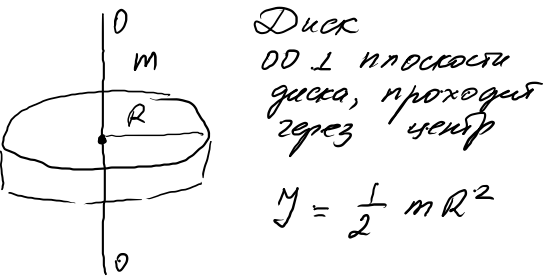 O
m
R
O
Диск
OO ⊥ плоскости
диска, проходит
через центр
J = 1/2 mR²